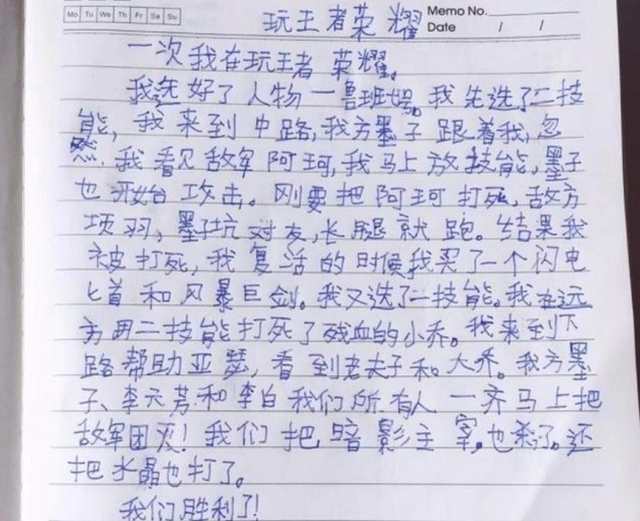 Mo Tu We Th Fr Sa Su
玩王者荣耀
Memo No.
Date / /
一次我在玩王者荣耀。
我选好了人物一鲁班号。我先选了二技
能,我来到中路,我方墨子跟着我,忽
然,我看见敌军阿珂,我马上放技能,墨子
也开始攻击。刚要把阿珂打死,敌方
项羽,墨子坑对友,长腿就跑。结果我
被打死,我复活的时候我买了一个闪电
匕首和风暴巨剑。我又选了二技能。我在远
方用二技能打死了残血的小乔。我来到下
路帮助亚瑟,看到老夫子和大乔。我方墨
子、李元芳和李白我们所有人一齐马上把
敌军团灭!我们把暗影主宰,也杀了。还
把水晶也打了。
我们胜利了!